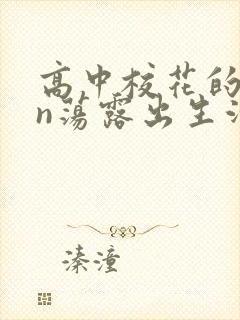 高中校花的
n荡露出生活
溱潼